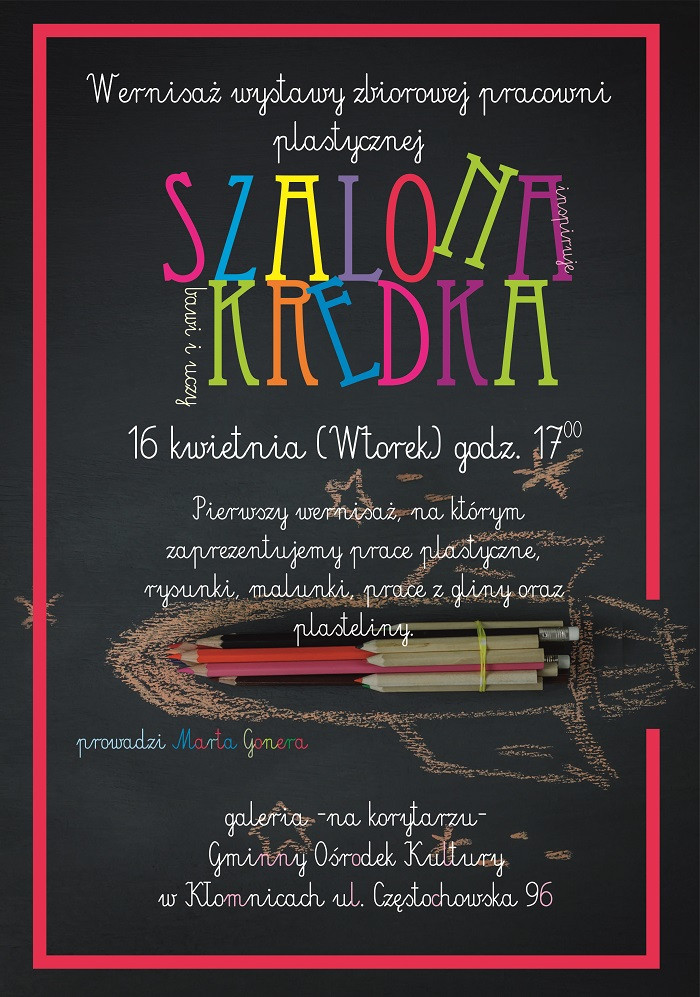 Wernisaż wystawy zbiorowej pracowni
plastycznej
SZALONA
inspiruje
bawi i uczy
KREDKA
16 kwietnia (Wtorek) godz. 17⁰⁰
Pierwszy wernisaż, na którym
zaprezentujemy prace plastyczne,
rysunki, malunki, prace z gliny oraz
plasteliny.
prowadzi Marta Gonera
galeria -na korytarzu-
Gminny Ośrodek Kultury
w Kłomnicach ul. Częstochowska 96